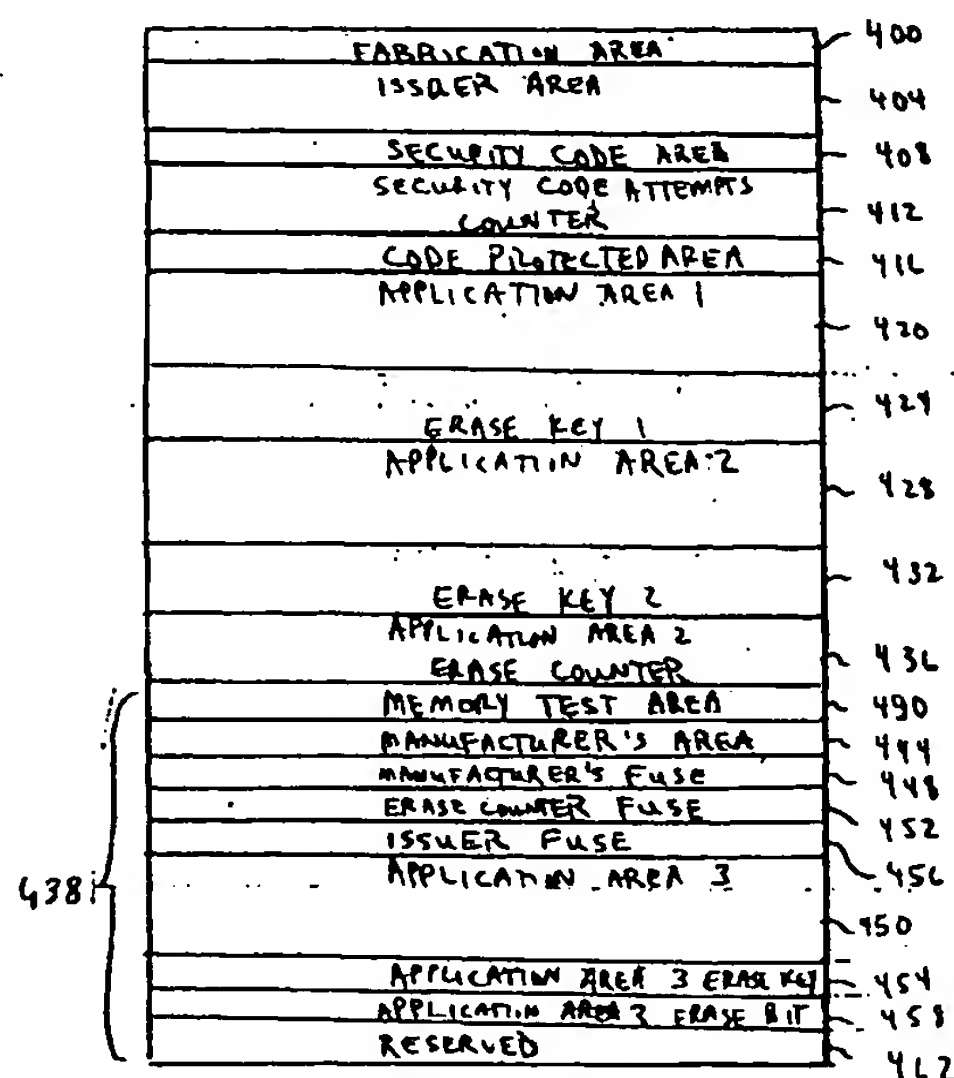 FABRICATION AREA 400
ISSUER AREA 404
SECURITY CODE AREA 408
SECURITY CODE ATTEMPTS
COUNTER 412
CODE PROTECTED AREA 416
APPLICATION AREA 1
420
424
ERASE KEY 1
APPLICATION AREA 2
428
432
ERASE KEY 2
APPLICATION AREA 2
ERASE COUNTER 436
MEMORY TEST AREA 490
MANUFACTURER'S AREA 444
MANUFACTURER'S FUSE 448
ERASE COUNTER FUSE 452
ISSUER FUSE 456
438 APPLICATION AREA 3
450
APPLICATION AREA 3 ERASE KEY 454
APPLICATION AREA 3 ERASE BIT 458
RESERVED 462